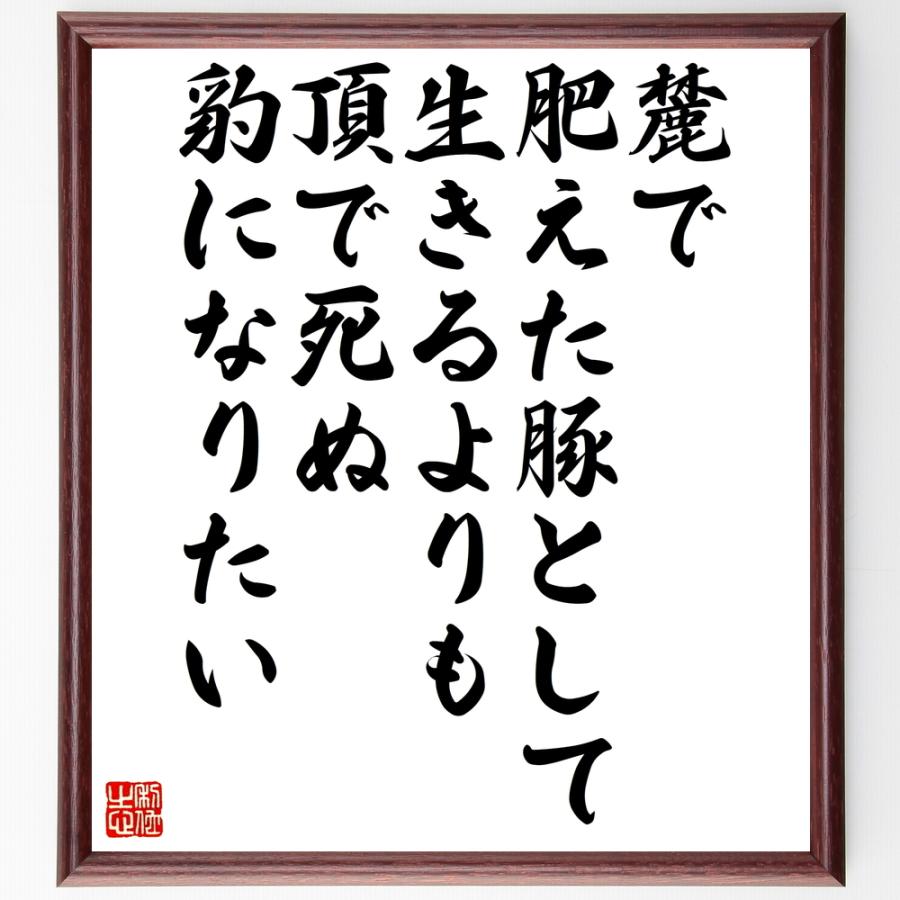 麓で
肥えた豚として
生きるよりも
頂で死ぬ
豹になりたい